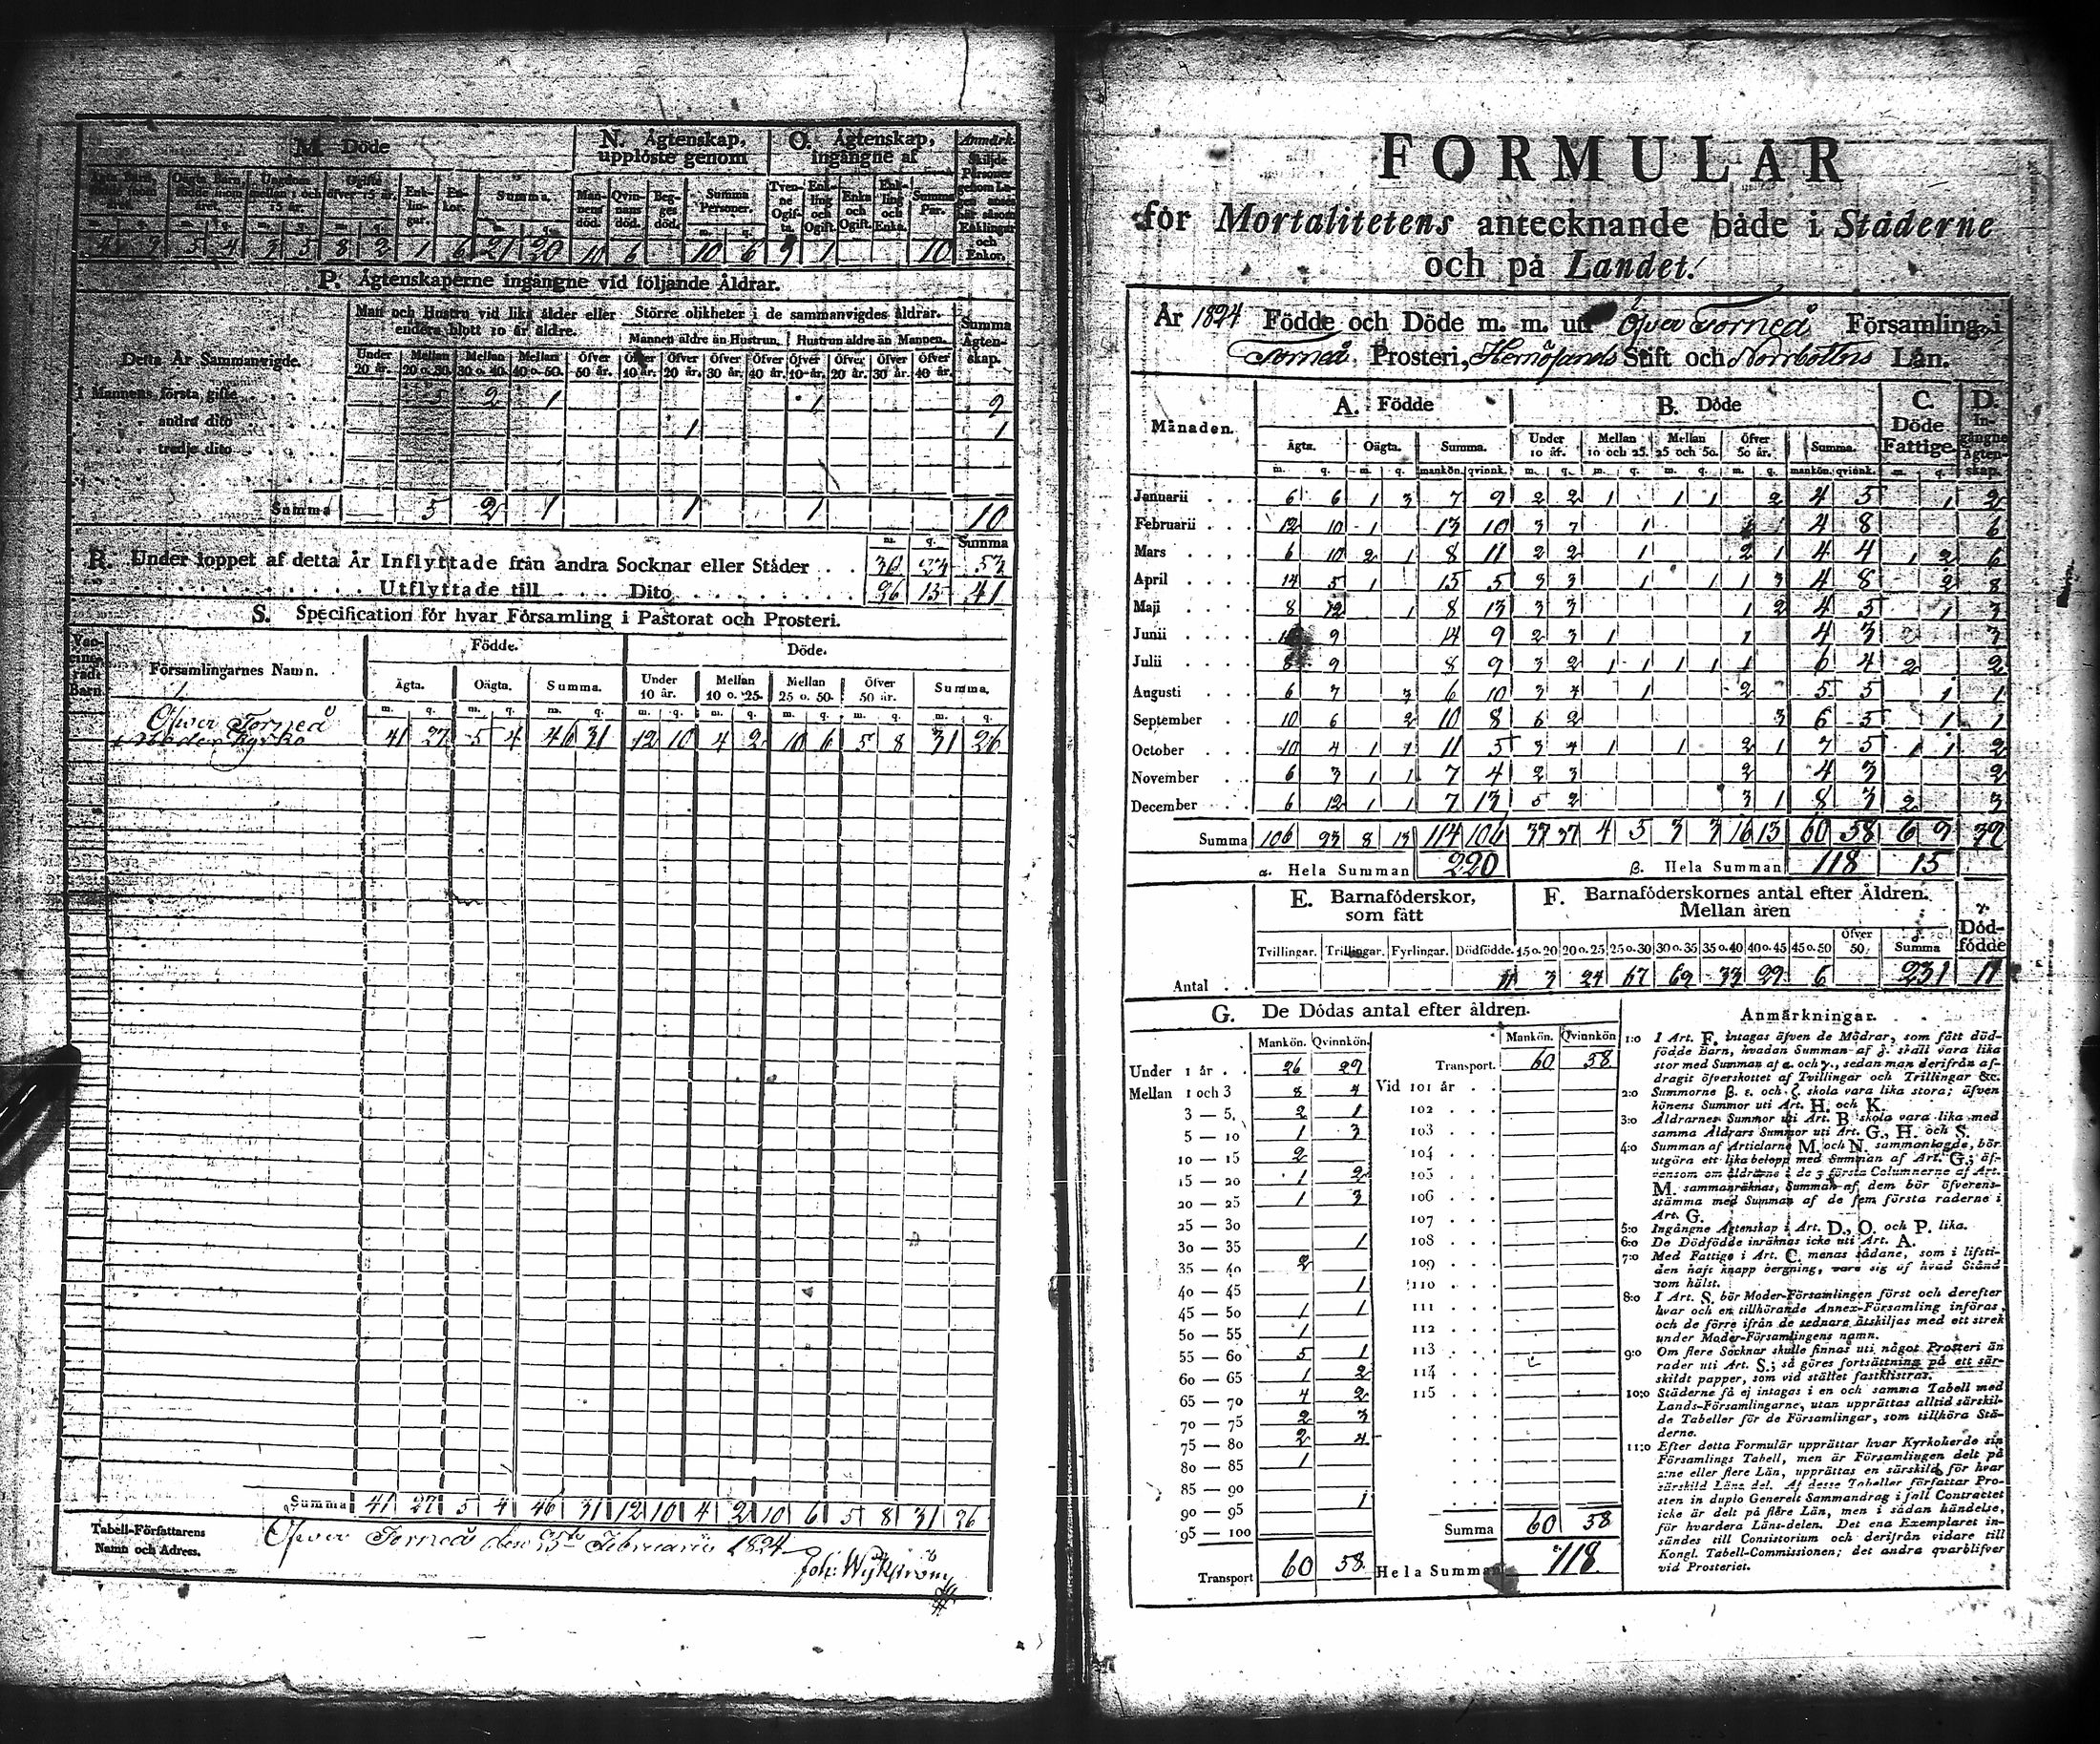 M. Döde
N. Ägtenskap, upplöste genom
O. Ägtenskap, ingångne af
Anmärk.
Enk- lin- gar.
En- kor.
Summa.
Man- nens död.
Qvin- nans död.
Beg- ges död.
Summa Personer.
Tven- ne Ogif- ta.
Enk- ling och Ogift.
Enka och Ogift.
Enk- ling och Enka.
Summa Par.
5 4 3 5 8 2 1 6 21 20 10 6 10 6 9 1 10
P. Ägtenskaperne ingångne vid följande Åldrar.
Detta År Sammanvigde.
Man och Hustru vid lika ålder eller endera blott 10 år äldre.
Större olikheter i de sammanvigdes åldrar.
Mannen äldre än Hustrun.
Hustrun äldre än Mannen.
Summa Ägten- skap.
Under 20 år.
Mellan 20 o. 30.
Mellan 30 o. 40.
Mellan 40 o. 50.
Öfver 50 år.
Öfver 10 år.
Öfver 20 år.
Öfver 30 år.
Öfver 40 år.
Öfver 10 år.
Öfver 20 år.
Öfver 30 år.
Öfver 40 år.
I Mannens första gifte 5 2 1 1 9
andra dito 1 1
tredje dito
Summa 5 2 1 1 1 10
m. q. Summa
R. Under loppet af detta År Inflyttade från andra Socknar eller Städer 30 23 53
Utflyttade till Dito 26 15 41
S. Specification för hvar Församling i Pastorat och Prosteri.
Församlingarnes Namn.
Födde.
Döde.
Ägta.
Oägta.
Summa.
Under 10 år.
Mellan 10 o. 25.
Mellan 25 o. 50.
Öfver 50 år.
Summa.
m. q. m. q. m. q. m. q. m. q. m. q. m. q. m. q.
Öfver Torneå
Moder Kyrko 41 27 5 4 46 31 12 10 4 2 10 6 5 8 31 26
Summa 41 27 5 4 46 31 12 10 4 2 10 6 5 8 31 26
Tabell-Författarens Namn och Adress.
Öfver Torneå den Februarii 1824
Joh: Wykström
FORMULÄR
för Mortalitetens antecknande både i Städerne
och på Landet.
År 1824 Födde och Döde m. m. uti Öfver Torneå Församling, i
Torneå Prosteri, Hernösands Stift och Norrbottns Län.
Månaden.
A. Födde
B. Döde
C. Döde Fattige.
D. In- gångne Ägten- skap.
Ägta. Oägta. Summa.
Under 10 år.
Mellan 10 och 25.
Mellan 25 och 50.
Öfver 50 år.
Summa.
m. q. m. q. mankön. qvinnk. m. q. m. q. m. q. m. q. mankön. qvinnk. m. q.
Januarii 6 6 1 3 7 9 2 2 1 1 1 2 4 5 1 2
Februarii 12 10 1 13 10 3 7 1 1 4 8 6
Mars 6 10 2 1 8 11 2 2 1 2 1 4 4 1 2 6
April 14 5 1 15 5 3 3 1 1 1 3 4 8 2 8
Maji 8 12 1 8 13 3 3 1 2 4 5 1 3
Junii 9 14 9 2 3 1 1 4 3 3
Julii 8 9 8 9 3 2 1 1 1 1 1 6 4 2 2
Augusti 6 7 3 6 10 3 4 1 2 5 5 1 1
September 10 6 2 10 8 6 2 3 6 5 1 1
October 10 4 1 1 11 5 3 4 1 1 2 1 7 5 1 1 2
November 6 3 1 1 7 4 2 3 2 4 3 2
December 6 12 1 1 7 13 5 2 3 1 8 3 2 3
Summa 106 93 8 13 114 106 37 37 4 5 3 3 16 13 60 58 6 9 39
α. Hela Summan 220
β. Hela Summan 118 15
E. Barnaföderskor, som fått
F. Barnaföderskornes antal efter Åldren. Mellan åren
γ. Död- födde
Tvillingar. Trillingar. Fyrlingar. Dödfödde. 15 o. 20 20 o. 25 25 o. 30 30 o. 35 35 o. 40 40 o. 45 45 o. 50 Öfver 50. Summa
Antal 11 3 24 67 69 33 29 6 231 11
G. De Dödas antal efter åldren.
Mankön. Qvinnkön. Mankön. Qvinnkön
Under 1 år 26 29 Transport. 60 58
Mellan 1 och 3 8 4 Vid 101 år
3 — 5. 2 1 102
5 — 10 1 3 103
10 — 15 2 104
15 — 20 1 2 105
20 — 25 1 3 106
25 — 30 107
30 — 35 1 108
35 — 40 2 109
40 — 45 1 110
45 — 50 1 1 111
50 — 55 1 112
55 — 60 5 1 113
60 — 65 1 2 114
65 — 70 4 2 115
70 — 75 2 3
75 — 80 2 4
80 — 85 1
85 — 90
90 — 95 1
95 — 100 Summa 60 58
Transport 60 58 Hela Summan 118.
Anmärkningar.
1:o I Art. F. intagas äfven de Mödrar, som fått död-
födde Barn, hvadan Summan af δ. skall vara lika
stor med Summan af α. och γ., sedan man derifrån af-
dragit öfverskottet af Tvillingar och Trillingar &c.
2:o Summorne β. ε. och ζ. skola vara lika stora; äfven
könens Summor uti Art. H. och K.
3:o Åldrarnes Summor uti Art. B. skola vara lika med
samma Åldrars Summor uti Art. G., H. och S.
4:o Summan af Articlarne M. och N. sammanlagde, bör
utgöra ett lika belopp med Summan af Art. G; äf-
vensom om åldrarne i de 3 första Columnerne af Art.
M. sammanräknas, Summan af dem bör öfverens-
stämma med Summan af de fem första raderne i
Art. G.
5:o Ingångne Ägtenskap i Art. D., O. och P. lika.
6:o De Dödfödde inräknas icke uti Art. A.
7:o Med Fattige i Art. C. menas sådane, som i lifsti-
den haft knapp bergning, vare sig af hvad Stånd
som hälst.
8:o I Art. S. bör Moder-Församlingen först och derefter
hvar och en tillhörande Annex-Församling införas,
och de förre ifrån de sednare åtskiljas med ett strek
under Moder-Församlingens namn.
9:o Om flere Socknar skulle finnas uti något Prosteri än
rader uti Art. S.; så göres fortsättning på ett sär-
skildt papper, som vid stället fastklistras.
10:o Städerne få ej intagas i en och samma Tabell med
Lands-Församlingarne, utan upprättas alltid särskil-
de Tabeller för de Församlingar, som tillhöra Stä-
derne.
11:o Efter detta Formulär upprättar hvar Kyrkoherde sin
Församlings Tabell, men är Församlingen delt på
2:ne eller flere Län, upprättas en särskild för hvar
särskild Läns del. Af desse Tabeller författar Pro-
sten in duplo Generelt Sammandrag i fall Contractet
icke är delt på flere Län, men i sådan händelse,
för hvardera Läns-delen. Det ena Exemplaret in-
sändes till Consistorium och derifrån vidare till
Kongl. Tabell-Commissionen; det andra qvarblifver
vid Prosteriet.